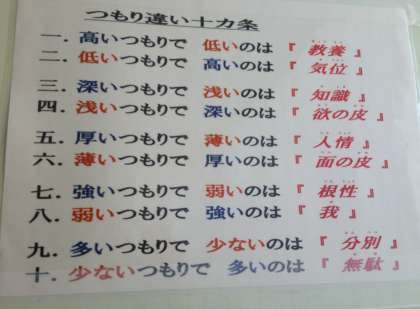 つもり違い十カ条
一．高いつもりで 低いのは『 教養 』
二．低いつもりで 高いのは『 気位 』
三．深いつもりで 浅いのは『 知識 』
四．浅いつもりで 深いのは『 欲の皮 』
五．厚いつもりで 薄いのは『 人情 』
六．薄いつもりで 厚いのは『 面の皮 』
七．強いつもりで 弱いのは『 根性 』
八．弱いつもりで 強いのは『 我 』
九．多いつもりで 少ないのは『 分別 』
十．少ないつもりで 多いのは『 無駄 』